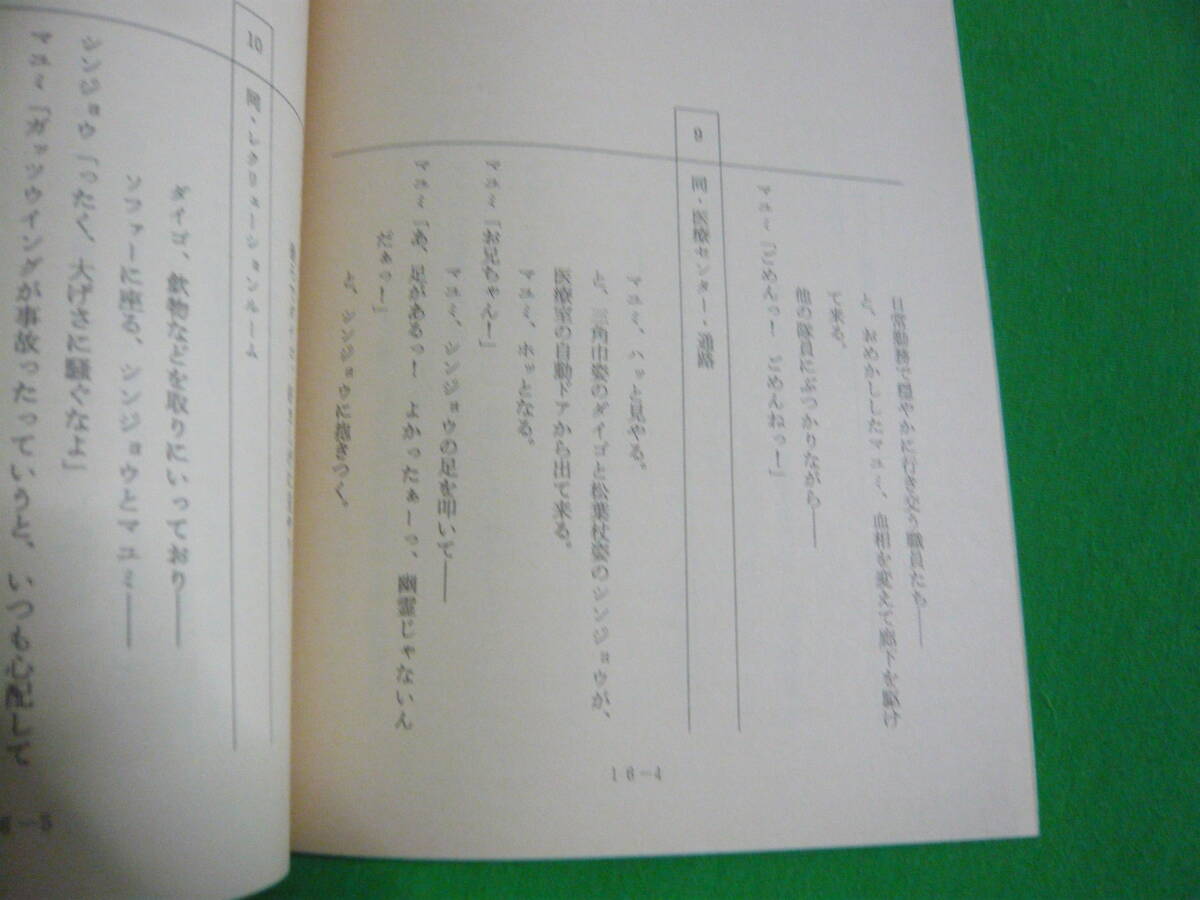 日常勤務で穏やかに行き交う職員たち――
と、おめかししたマユミ、血相を変えて廊下を駆け
て来る。
他の隊員にぶつかりながら――
マユミ「ごめんっ！ ごめんねっ！」
9 同・医療センター・通路
マユミ、ハッと見やる。
と、三角巾姿のダイゴと松葉杖姿のシンジョウが、
医療室の自動ドアから出て来る。
マユミ、ホッとなる。
マユミ「お兄ちゃん！」
マユミ、シンジョウの足を叩いて――
マユミ「あ、足があるっ！ よかったぁーっ、幽霊じゃないん
だぁっ！」
と、シンジョウに抱きつく。
16－4
10 同・レクリューションルーム
ダイゴ、飲物などを取りにいっており――
ソファーに座る、シンジョウとマユミ――
シンジョウ「ったく、大げさに騒ぐなよ」
マユミ「ガッツウイングが事故ったっていうと、いつも心配して
6－5